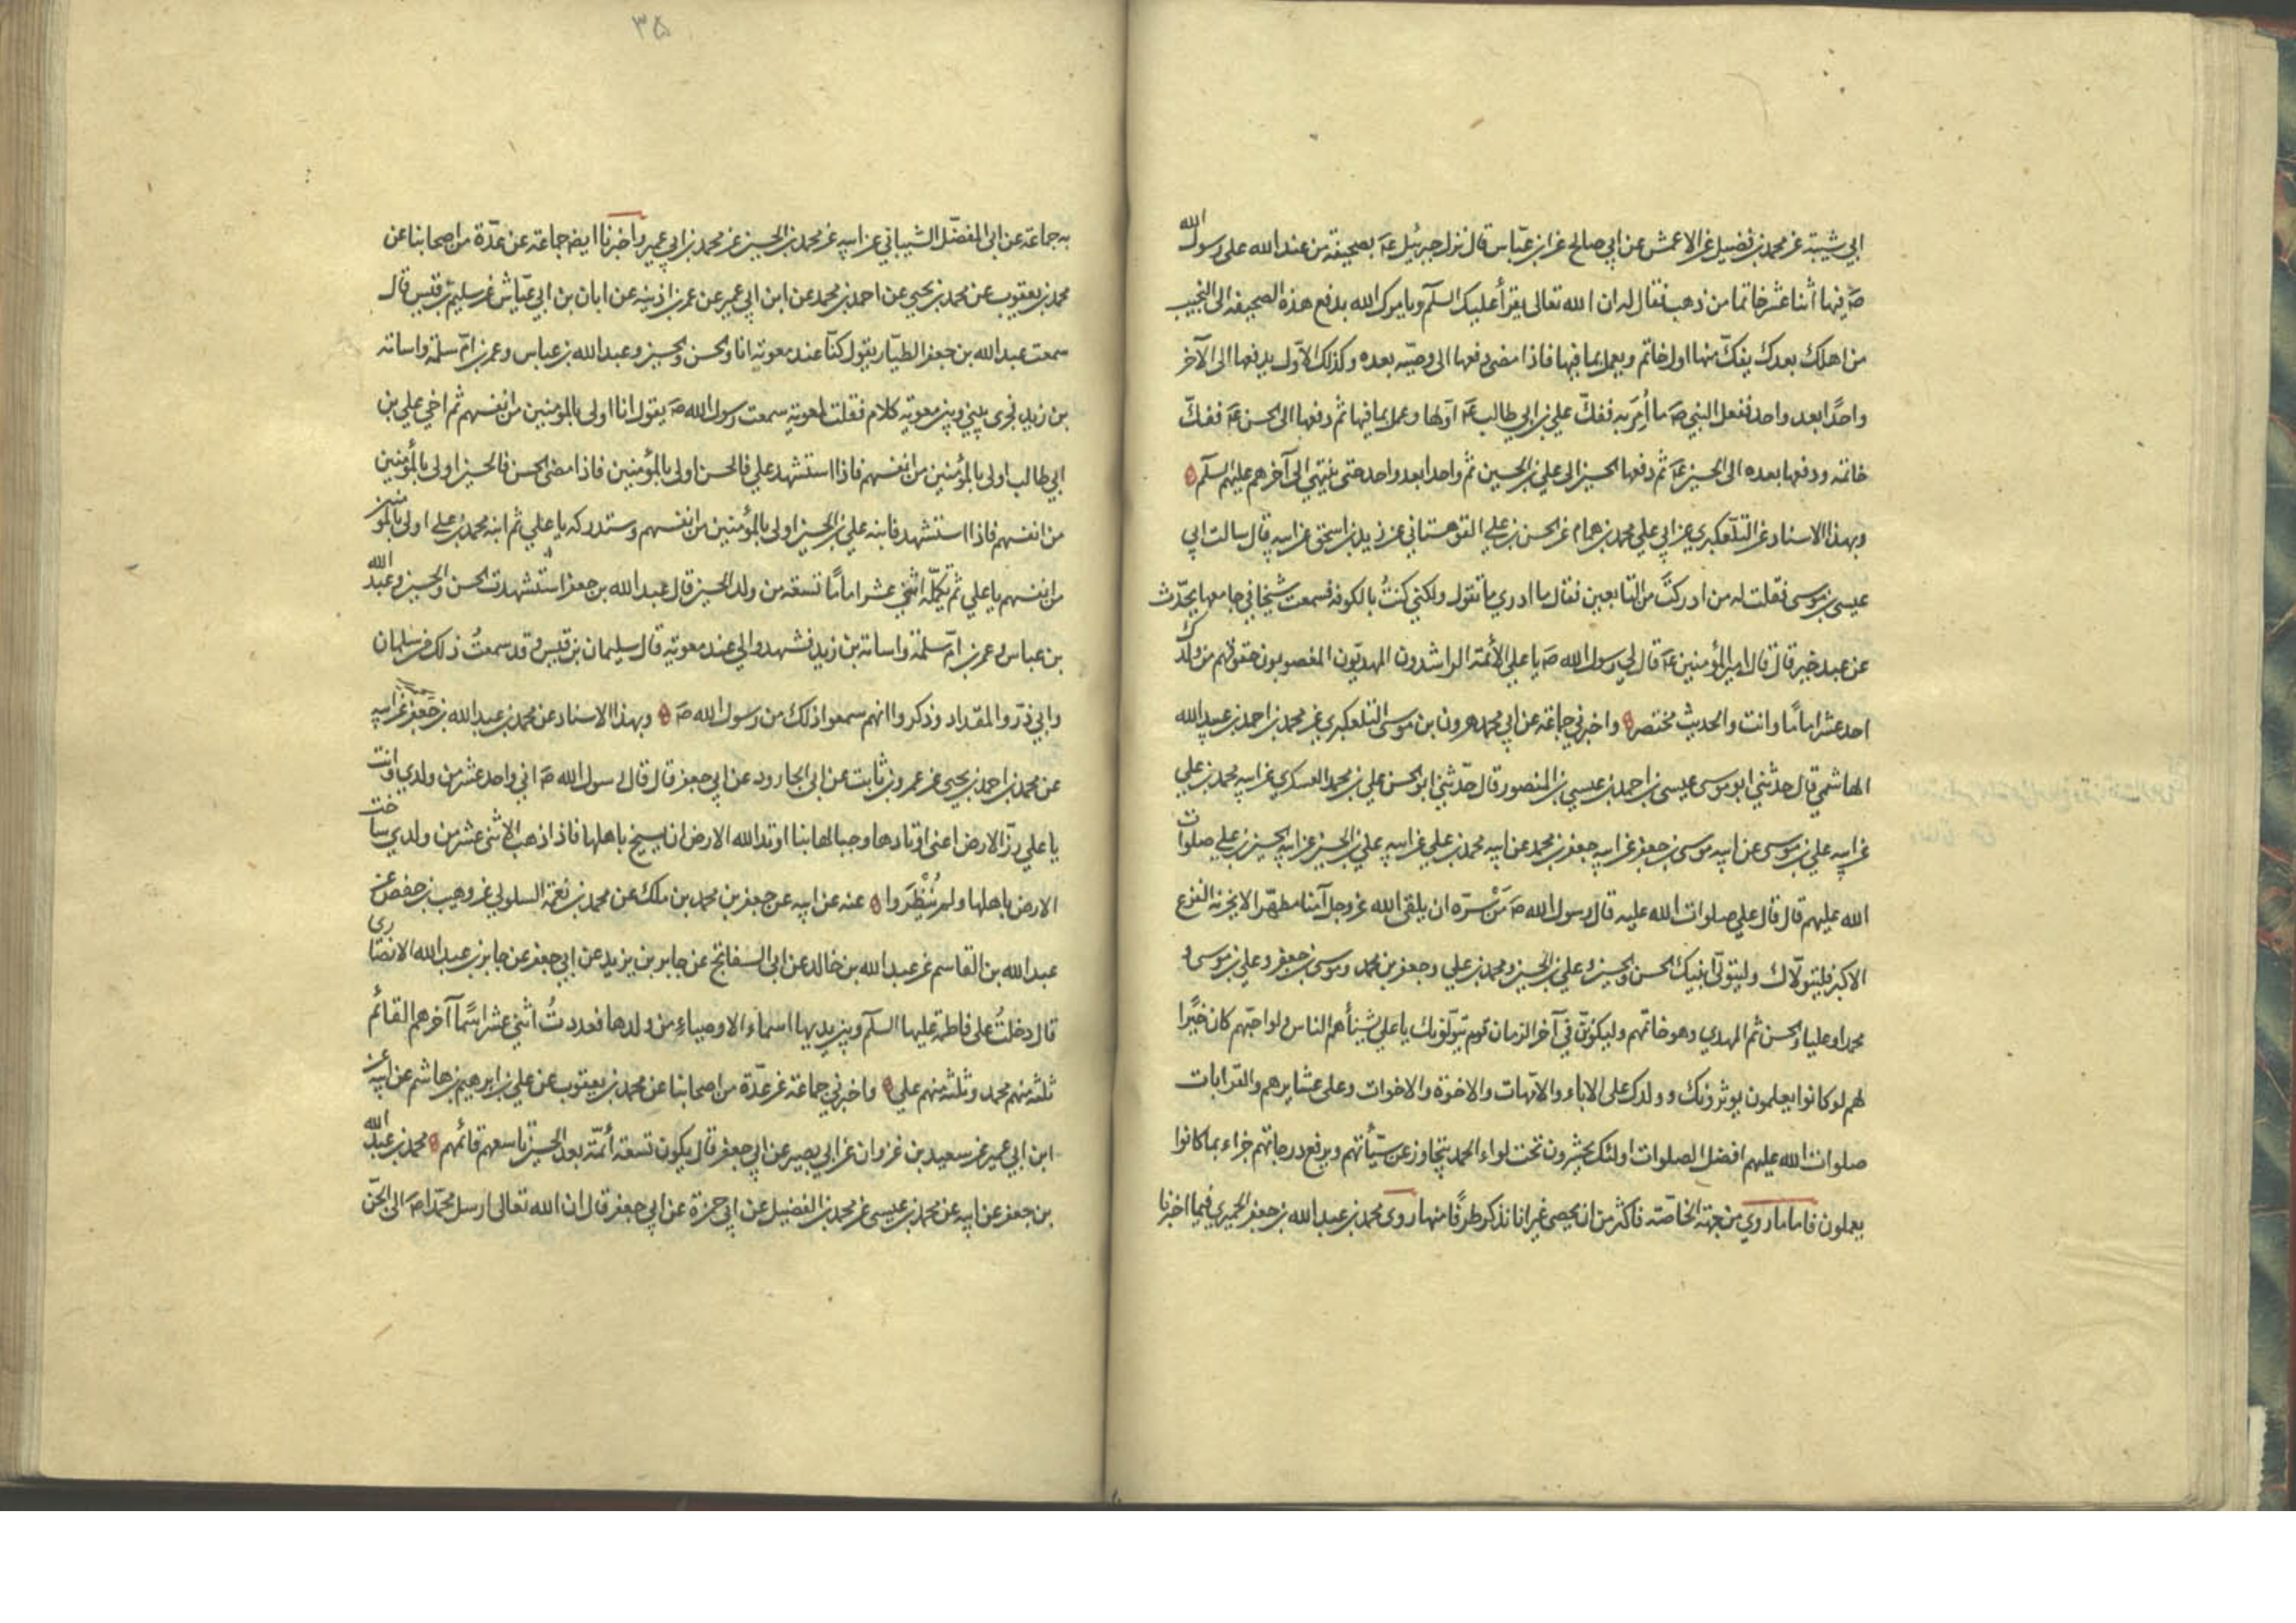 ابي شيبة عن محمد بن فضيل عن الاعمش عن ابي صالح عن ابن عباس قال نزل جبرئيل عَ بصحيفة من عند الله على رسول الله
صَ فيها اثنا عشر خاتما من ذهب فقال له ان الله تعالى يقرأ عليك السلم ويامرك الله بدفع هذه الصحيفة الى النجيب
من اهلك بعدك يفكّ منها اول خاتم ويعمل بما فيها فاذا مضى دفعها الى وصيّه بعده وكذلك الاوّل يدفعها الى الآخر
واحدًا بعد واحد ففعل النبي صَ ما أُمِرَ به ففكّ علي بن ابي طالب عَ اوّلها وعمل بما فيها ثم دفعها الى الحسن عَ ففكّ
خاتمه ودفعها بعده الى الحسين عَ ثم دفعها الحسين الى علي بن الحسين ثم واحدا بعد واحد حتى ينتهي الى آخرهم عليهم السلم
وبهذا الاسناد عن التلّعكبري عن ابي علي محمد بن همام عن الحسن بن علي القوهستاني عن زيد بن اسحق عن ابيه قال سالت ابي
عيسى بن موسى فقلت له من ادركتَ من التابعين فقال ما ادري ما تقول ولكني كنتُ بالكوفة فسمعت شيخا في جامعها يحدّث
عن عبد خير قال قال امير المؤمنين عَ قال لي رسول الله صَ يا علي الأئمة الراشدون المهديّون المغصوبون حقوقهم من ولدك
احد عشر امامًا وانت والحديث مختصر واخبرني جماعة عن ابي محمد هرون بن موسى التلعكبري عن محمد بن احمد بن عبيد الله
الهاشمي قال حدثني ابو موسى عيسى بن احمد بن عيسى بن المنصور قال حدّثني ابو الحسن علي بن محمد العسكري عن ابيه محمد بن علي
عن ابيه علي بن موسى عن ابيه موسى بن جعفر عن ابيه جعفر بن محمد عن ابيه محمد بن علي عن ابيه علي بن الحسين عن ابيه الحسين بن علي صلوات
الله عليهم قال قال علي صلوات الله عليه قال رسول الله صَ مَنْ سَرّه ان يلقى الله عز وجل آمنا مطهّرا لا يحزنه الفزع
الاكبر فليتولّاك وليتولّ ابنيك الحسن والحسين وعلي بن الحسين ومحمد بن علي وجعفر بن محمد وموسى بن جعفر وعلي بن موسى و
محمدا وعليا والحسن ثم المهدي وهو خاتمهم وليكوننّ في آخر الزمان قوم يتولّونك يا علي يشنأهم الناس ولو احبّهم كان خيرًا
لهم لو كانوا يعلمون يوثرونك وولدك على الاباء والامّهات والاخوة والاخوات وعلى عشايرهم والقرابات
صلوات الله عليهم افضل الصلوات اولئك يحشرون تحت لواء الحمد يتجاوز عن سيّأتهم ويرفع درجاتهم جزاء بما كانوا
يعملون فاما ما روي من جهة الخاصّة فاكثر من ان يحصى غير انا نذكر طرفًا منها روى محمد بن عبد الله بن جعفر الحميري فيما اخبرنا
۳۵
به جماعة عن ابي المفضّل الشيباني عن ابيه عن محمد بن الحسين عن محمد بن ابي عمير واخبرنا ايضا جماعة عن عدّة من اصحابنا عن
محمد بن يعقوب عن محمد بن يحيى عن احمد بن محمد عن ابن ابي عمير عن عمر بن اذينه عن ابان بن ابي عيّاش عن سليم بن قيس قال
سمعت عبد الله بن جعفر الطيّار يقول كنّا عند معوية انا والحسن والحسين وعبد الله بن عباس وعمر بن امّ سلمة واسامة
بن زيد فجرى بيني وبين معوية كلام فقلت لمعوية سمعت رسول الله صَ يقول انا اولى بالمؤمنين من انفسهم ثم اخي علي بن
ابي طالب اولى بالمؤمنين من انفسهم فاذا استشهد علي فالحسن اولى بالمؤمنين فاذا مضى الحسن فالحسين اولى بالمؤمنين
من انفسهم فاذا استشهد فابنه علي بن الحسين اولى بالمؤمنين من انفسهم وستدركه يا علي ثم ابنه محمد بن علي اولى بالمؤمنين
من انفسهم يا علي ثم تكملّه اثني عشر امامًا تسعة من ولد الحسين قال عبد الله بن جعفر استشهدت الحسن والحسين وعبد الله
بن عباس وعمر بن امّ سلمة واسامة بن زيد فشهدوا لي عند معوية قال سليمان بن قيس وقد سمعتُ ذلك من سلمان
وابي ذرّ والمقداد وذكروا انهم سمعوا ذلك من رسول الله صَ وبهذا الاسناد عن محمد بن عبد الله بن جعفر عن ابيه
عن محمد بن احمد بن يحيى عن عمرو بن ثابت عن ابي الجارود عن ابي جعفر قال قال رسول الله صَ اني واحد عشر من ولدي وانت
يا علي رزّ الارض اعني اوتادها وجبالها بنا اوتد الله الارض ان يسيخ باهلها فاذا ذهب الاثنى عشر من ولدي ساخت
الارض باهلها ولم يُنْظَروا عنه عن ابيه عن جعفر بن محمد بن ملك عن محمد بن نعمة السلولي عن وهيب بن حفص عن
عبد الله بن القاسم عن عبد الله بن خالد عن ابي السفاتج عن جابر بن يزيد عن ابي جعفر عن جابر بن عبد الله الانصاري
قال دخلتُ على فاطمة عليها السلم وبين يديها اسماء الاوصياء من ولدها فعددتُ اثني عشر اسمًا آخرهم القائم
ثلثة منهم محمد وثلثة منهم علي واخبرني جماعة عن عدّة من اصحابنا عن محمد بن يعقوب عن علي بن ابرهيم بن هاشم عن ابيه عن
ابن ابي عمير عن سعيد بن غزوان عن ابي بصير عن ابي جعفر قال يكون تسعة أئمّة بعد الحسين تاسعهم قائمهم محمد بن عبد الله
بن جعفر عن ابيه عن محمد بن عيسى عن محمد بن الفضيل عن ابي حمزة عن ابي جعفر قال ان الله تعالى ارسل محمّدا صَ الى الجنّ